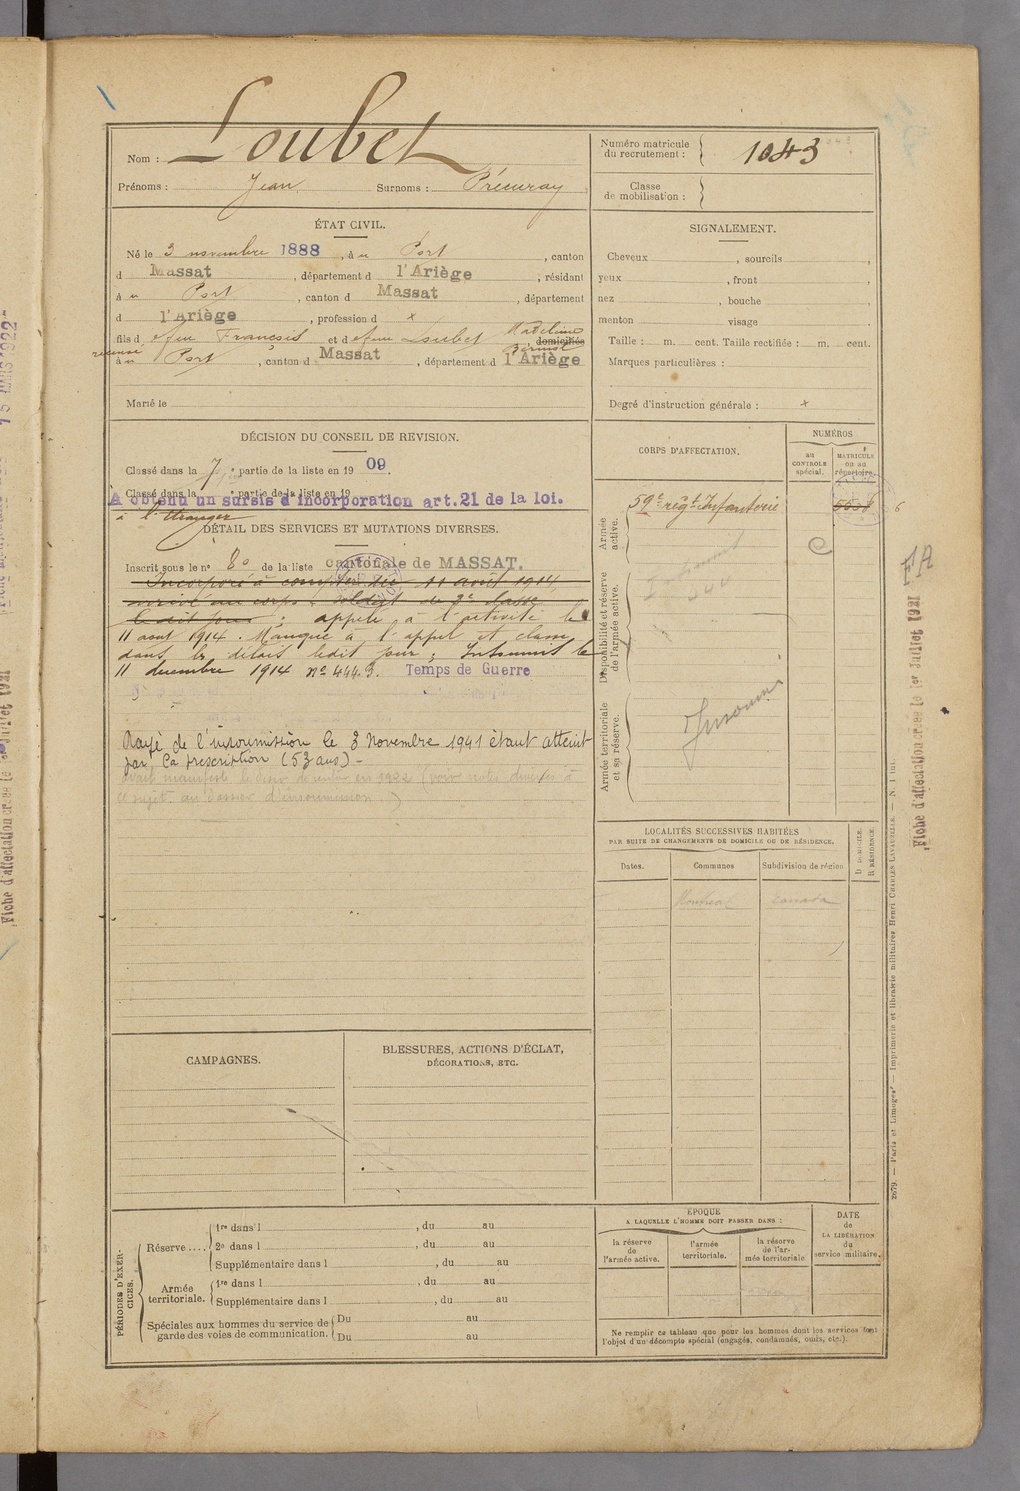 Nom : Loubet
Prénoms : Jean Surnoms :
Numéro matricule du recrutement : 1043
Classe de mobilisation :
ÉTAT CIVIL.
Né le 3 novembre 1888, à u Port, canton
d Massat, département d l'Ariège, résidant
à u Port, canton d Massat, département
d l'Ariège, profession d x
fils d feu Francois et d feue Loubet Madeleine domiciliés
à u Port, canton d Massat, département d l'Ariège
Marié le
SIGNALEMENT.
Cheveux , sourcils ,
yeux , front ,
nez , bouche ,
menton visage
Taille : m. cent. Taille rectifiée : m. cent.
Marques particulières :
Degré d'instruction générale : x
DÉCISION DU CONSEIL DE REVISION.
Classé dans la 7e partie de la liste en 1909.
Classé dans la e partie de la liste en 19
A obtenu un sursis d'incorporation art. 21 de la loi.
à l'étranger
DÉTAIL DES SERVICES ET MUTATIONS DIVERSES.
Inscrit sous le n° 80 de la liste cantonale de MASSAT.
Incorporé à compter du 11 août 1914
arrivé au corps soldat de 2e classe
le dit jour ; appelé à l'activité le
11 aout 1914. Manque à l'appel et classé
dans les délais ledit jour ; Insoumis le
11 decembre 1914 n° 444.3. Temps de Guerre
Rayé de l'insoumission le 3 Novembre 1941 étant atteint
par la prescription (53 ans) -
avait manifesté le désir de rentrer en 1922 (voir notes diverses à
ce sujet au dossier d'insoumission)
CORPS D'AFFECTATION.
NUMÉROS
au CONTROLE spécial.
MATRICULE ou au répertoire.
Armée active.
59e régt Infanterie
Disponibilité et réserve de l'armée active.
Insoumis
Armée territoriale et sa réserve.
Insoumis
LOCALITÉS SUCCESSIVES HABITÉES
PAR SUITE DE CHANGEMENTS DE DOMICILE OU DE RÉSIDENCE.
Dates. Communes Subdivision de région D DOMICILE. R RÉSIDENCE.
Montreal Canada
CAMPAGNES.
BLESSURES, ACTIONS D'ÉCLAT,
DÉCORATIONS, ETC.
PÉRIODES D'EXERCICES.
Réserve .... 1re dans l , du au
2e dans l , du au
Supplémentaire dans l , du au
Armée territoriale. 1re dans l , du au
Supplémentaire dans l , du au
Spéciales aux hommes du service de garde des voies de communication. Du au
Du au
ÉPOQUE
A LAQUELLE L'HOMME DOIT PASSER DANS :
la réserve de l'armée active.
l'armée territoriale.
la réserve de l'armée territoriale.
DATE de LA LIBÉRATION du service militaire.
Ne remplir ce tableau que pour les hommes dont les services font
l'objet d'un décompte spécial (engagés, condamnés, omis, etc.).
2879. — Paris et Limoges. — Imprimerie et librairie militaires Henri CHARLES-LAVAUZELLE. — N. 1 int.
FA
Fiche d'affectation créée le 1er Juillet 1921
Fiche d'affectation créée le 1er Juillet 1921
15 MARS 1922